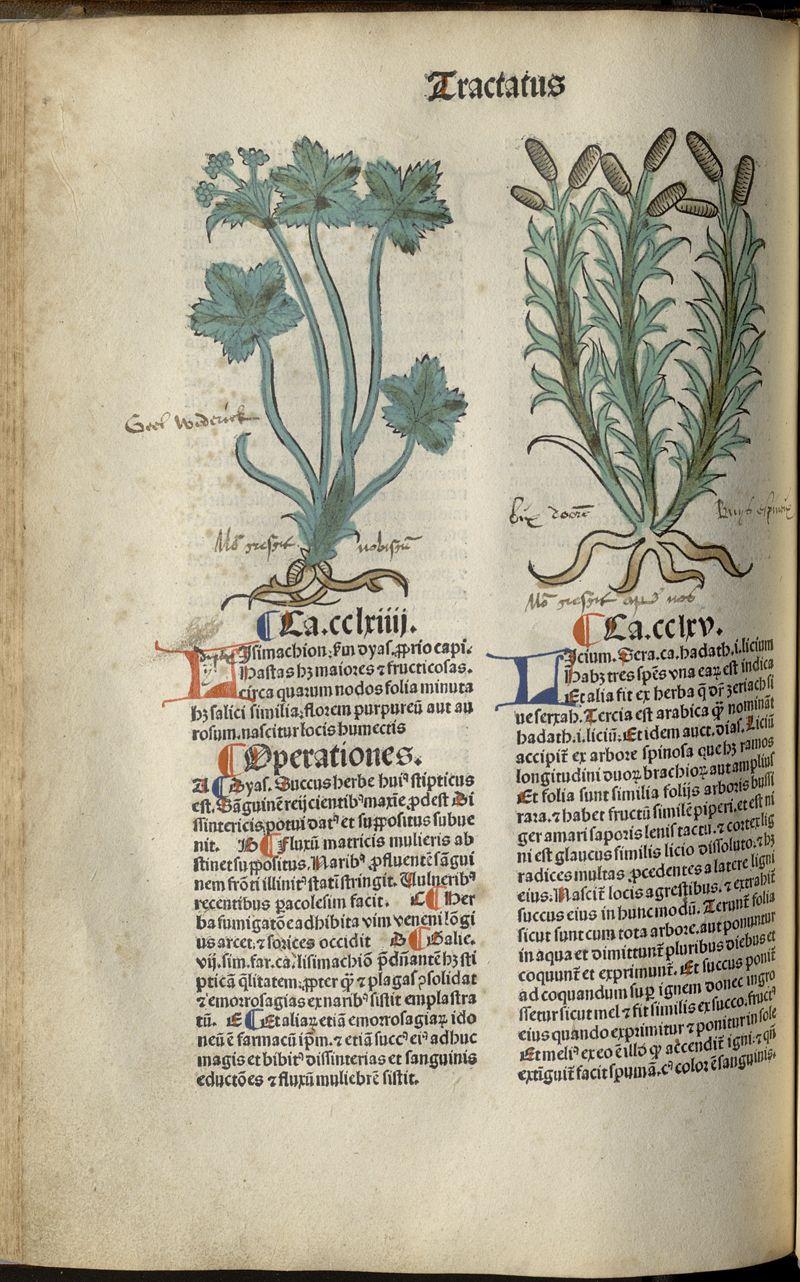 Tractatus
Geel wederick
Ca.cclxiiij.
Lisimachion: scḋm dyas. ꝓprio capi.
Hastas hꝫ maiores ⁊ fructicosas.
circa quarum nodos folia minuta
hꝫ salici similia: florem purpureū aut au
rosum. nascitur locis humectis
Operationes.
A Dyas. Succus herbe huiꝰ stipticus
est. Sāguinē reijcientibꝰ maxīe ꝓdest Di
ssintericis potui datꝰ et suppositus subue
nit. B Fluxū matricis mulieris ab
stinet suppositus. Naribꝰ ꝓfluentē sāgui
nem frōti illinitꝰ statī stringit. Vulneribꝰ
recentibus pacolesim facit. C Her
ba sumigatōe adhibita vim veneni lōgi
us arcet. ⁊ sorices occidit D Galie.
vij. sim. far. ca. lisimachiō p̄dn̄antē hꝫ sti
pticā q̄litatem: ꝓpter qḋ ⁊ plagas ꝯsolidat
⁊ emorrosagias ex naribꝰ sistit emplastra
tū. E Et aliaꝝ etiā emorrosagiaꝝ ido
neū ē farmacū ip̄m. ⁊ etiā succꝰ eiꝰ adhuc
magis et bibitꝰ dissinterias et sanguinis
eductōes ⁊ fluxū muliebrē sistit.
Ca.cclxv.
Licium. Sera. ca. hadath. i. licium
Habꝫ tres spēs vna eaꝝ est indica
Et alia fit ex herba q̄ dr̄ zeriach si
ue serxab. Tercia est arabica qḋ nominat̄
hadath. i. liciū: Et idem auct. dias. Liciū
accipit̄ ex arbore spinosa que hꝫ ramos
longitudini duoꝝ brachioꝝ aut amplius
Et folia sunt similia folijs arboris bussi
rara. ⁊ habet fructū similē piperi. et est ni
ger amari saporis lenis tactu. ⁊ cortex lig
ni est glaucus similis licio dissoluto. ⁊ hꝫ
radices multas ꝓcedentes a latere ligni
eius. Nascit̄ locis agrestibus. ⁊ extrahit̄
succus eius in hunc modū. Terunt̄ folia
sicut sunt cum tota arbore. aut ponuntur
in aqua et dimittunt̄ pluribus diebus et
coquunt̄ et exprimunt̄. Et succus ponit̄
ad coquandum suꝑ ignem donec ingro
ssetur sicut mel ⁊ fit similis ex succo. fructꝰ
eius quando exprimitur ⁊ ponitur in sole
Et meliꝰ ex eo ē illd̄ qḋ accendit̄ igni. ⁊ qn̄
extīguit̄ facit spumā. cꝰ color ē sanguinis.